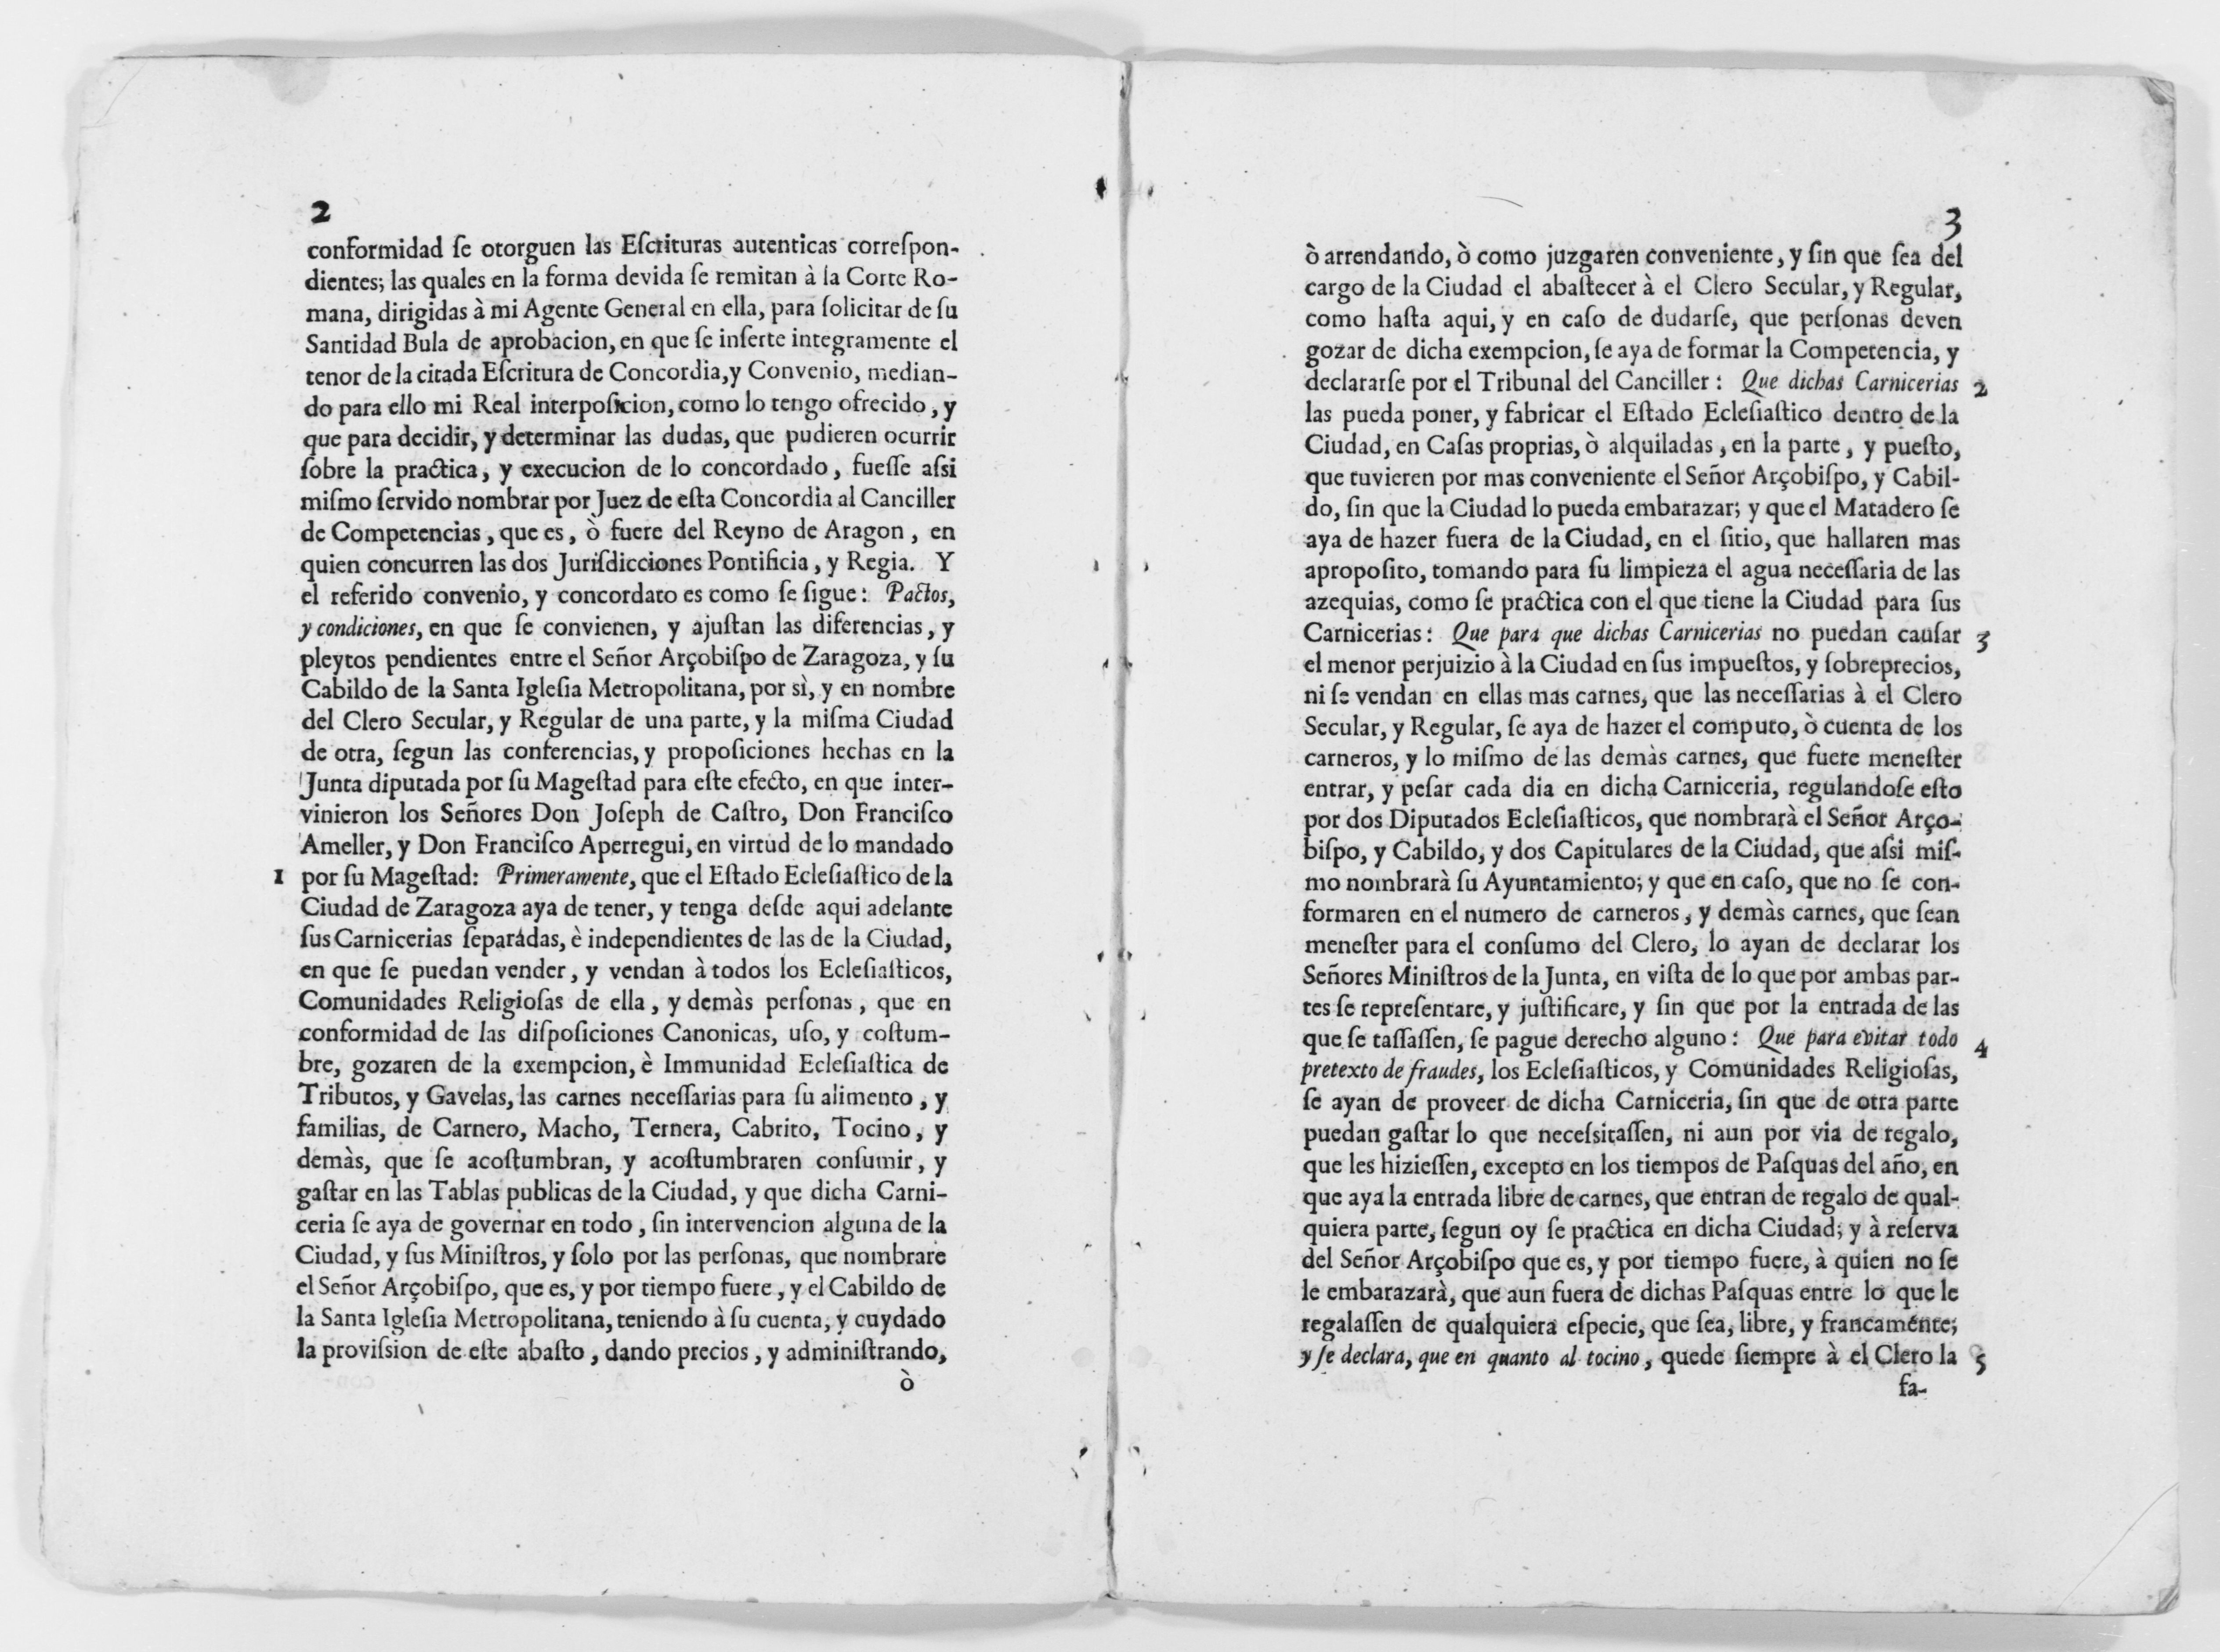 2
conformidad ſe otorguen las Eſcrituras autenticas correſpon-
dientes; las quales en la forma devida ſe remitan à la Corte Ro-
mana, dirigidas à mi Agente General en ella, para ſolicitar de ſu
Santidad Bula de aprobacion, en que ſe inſerte integramente el
tenor de la citada Eſcritura de Concordia, y Convenio, median-
do para ello mi Real interpoſicion, como lo tengo ofrecido, y
que para decidir, y determinar las dudas, que pudieren ocurrir
ſobre la practica, y execucion de lo concordado, fueſſe aſsi
miſmo ſervido nombrar por Juez de eſta Concordia al Canciller
de Competencias, que es, ò fuere del Reyno de Aragon, en
quien concurren las dos Juriſdicciones Pontificia, y Regia. Y
el referido convenio, y concordato es como ſe ſigue: Pactos,
y condiciones, en que ſe convienen, y ajuſtan las diferencias, y
pleytos pendientes entre el Señor Arçobiſpo de Zaragoza, y ſu
Cabildo de la Santa Igleſia Metropolitana, por sì, y en nombre
del Clero Secular, y Regular de una parte, y la miſma Ciudad
de otra, ſegun las conferencias, y propoſiciones hechas en la
Junta diputada por ſu Mageſtad para eſte efecto, en que inter-
vinieron los Señores Don Joſeph de Caſtro, Don Franciſco
Ameller, y Don Franciſco Aperregui, en virtud de lo mandado
1 por ſu Mageſtad: Primeramente, que el Eſtado Ecleſiaſtico de la
Ciudad de Zaragoza aya de tener, y tenga deſde aqui adelante
ſus Carnicerias ſeparadas, è independientes de las de la Ciudad,
en que ſe puedan vender, y vendan à todos los Ecleſiaſticos,
Comunidades Religioſas de ella, y demàs perſonas, que en
conformidad de las diſpoſiciones Canonicas, uſo, y coſtum-
bre, gozaren de la exempcion, è Immunidad Ecleſiaſtica de
Tributos, y Gavelas, las carnes neceſſarias para ſu alimento, y
familias, de Carnero, Macho, Ternera, Cabrito, Tocino, y
demàs, que ſe acoſtumbran, y acoſtumbraren conſumir, y
gaſtar en las Tablas publicas de la Ciudad, y que dicha Carni-
ceria ſe aya de governar en todo, ſin intervencion alguna de la
Ciudad, y ſus Miniſtros, y ſolo por las perſonas, que nombrare
el Señor Arçobiſpo, que es, y por tiempo fuere, y el Cabildo de
la Santa Igleſia Metropolitana, teniendo à ſu cuenta, y cuydado
la proviſsion de eſte abaſto, dando precios, y adminiſtrando,
ò
3
ò arrendando, ò como juzgaren conveniente, y ſin que ſea del
cargo de la Ciudad el abaſtecer à el Clero Secular, y Regular,
como haſta aqui, y en caſo de dudarſe, que perſonas deven
gozar de dicha exempcion, ſe aya de formar la Competencia, y
declararſe por el Tribunal del Canciller: Que dichas Carnicerias 2
las pueda poner, y fabricar el Eſtado Ecleſiaſtico dentro de la
Ciudad, en Caſas proprias, ò alquiladas, en la parte, y pueſto,
que tuvieren por mas conveniente el Señor Arçobiſpo, y Cabil-
do, ſin que la Ciudad lo pueda embarazar; y que el Matadero ſe
aya de hazer fuera de la Ciudad, en el ſitio, que hallaren mas
apropoſito, tomando para ſu limpieza el agua neceſſaria de las
azequias, como ſe practica con el que tiene la Ciudad para ſus
Carnicerias: Que para que dichas Carnicerias no puedan cauſar 3
el menor perjuizio à la Ciudad en ſus impueſtos, y ſobreprecios,
ni ſe vendan en ellas mas carnes, que las neceſſarias à el Clero
Secular, y Regular, ſe aya de hazer el computo, ò cuenta de los
carneros, y lo miſmo de las demàs carnes, que fuere meneſter
entrar, y peſar cada dia en dicha Carniceria, regulandoſe eſto
por dos Diputados Ecleſiaſticos, que nombrarà el Señor Arço-
biſpo, y Cabildo, y dos Capitulares de la Ciudad, que aſsi miſ-
mo nombrarà ſu Ayuntamiento; y que en caſo, que no ſe con-
formaren en el numero de carneros, y demàs carnes, que ſean
meneſter para el conſumo del Clero, lo ayan de declarar los
Señores Miniſtros de la Junta, en viſta de lo que por ambas par-
tes ſe repreſentare, y juſtificare, y ſin que por la entrada de las
que ſe taſſaſſen, ſe pague derecho alguno: Que para evitar todo 4
pretexto de fraudes, los Ecleſiaſticos, y Comunidades Religioſas,
ſe ayan de proveer de dicha Carniceria, ſin que de otra parte
puedan gaſtar lo que neceſsitaſſen, ni aun por via de regalo,
que les hizieſſen, excepto en los tiempos de Paſquas del año, en
que aya la entrada libre de carnes, que entran de regalo de qual-
quiera parte, ſegun oy ſe practica en dicha Ciudad; y à reſerva
del Señor Arçobiſpo que es, y por tiempo fuere, à quien no ſe
le embarazarà, que aun fuera de dichas Paſquas entre lo que le
regalaſſen de qualquiera eſpecie, que ſea, libre, y francamente;
y ſe declara, que en quanto al tocino, quede ſiempre à el Clero la 5
fa-